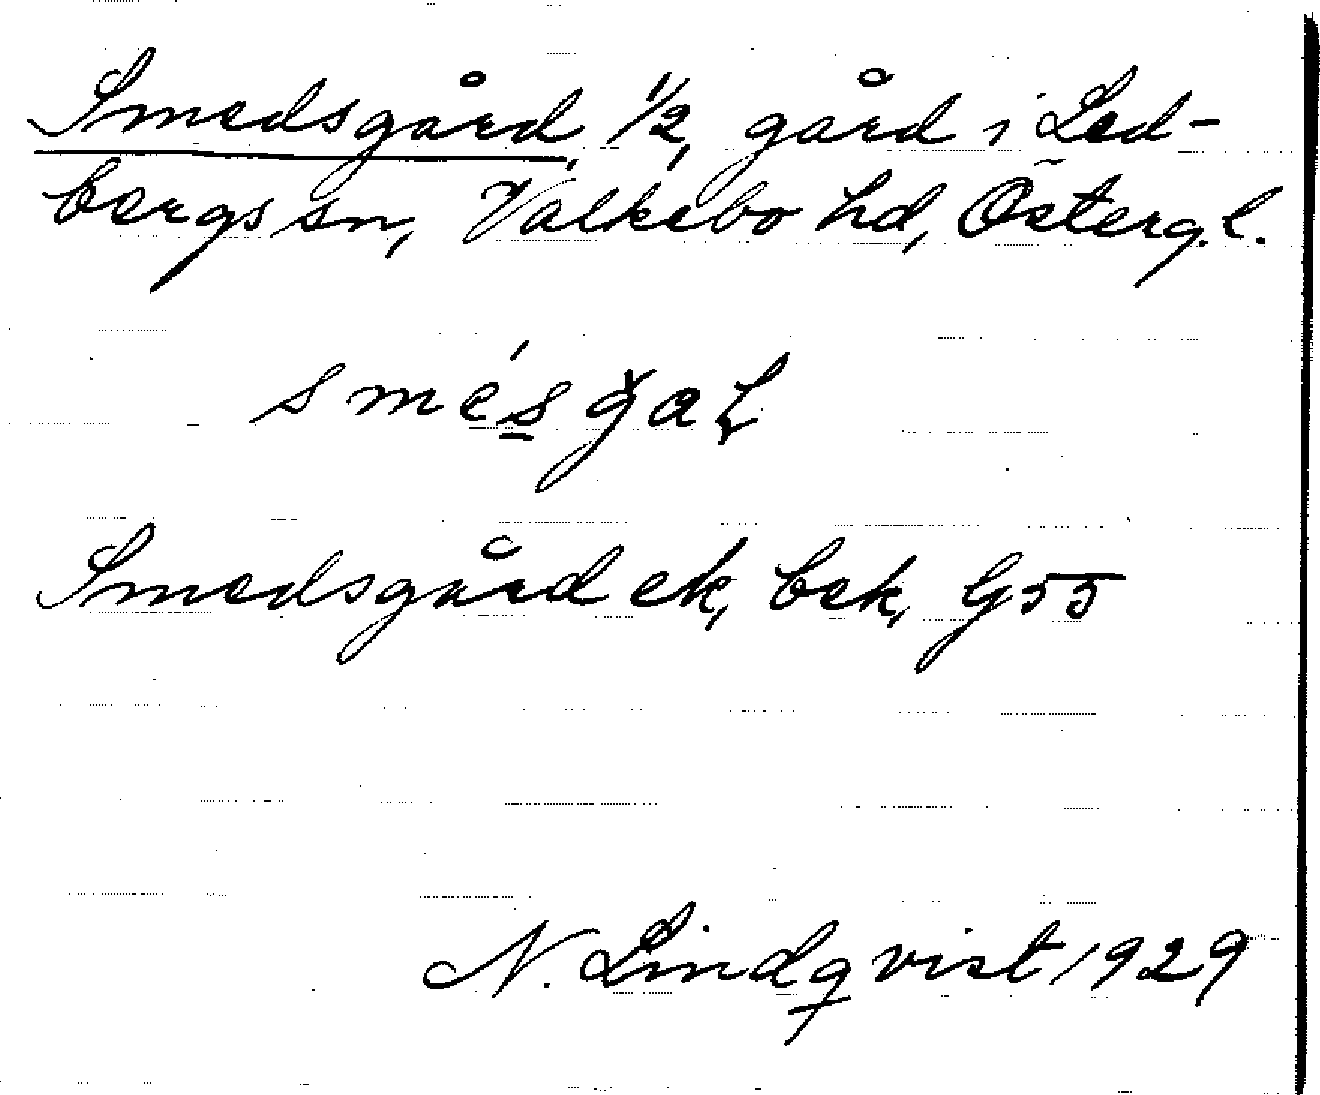 Smedsgård, 1/2, gård i Led-
bergs sn, Valkebo hd, Österg.l.
Smedsgård ek, bek, G55
N. Lindqvist 1929